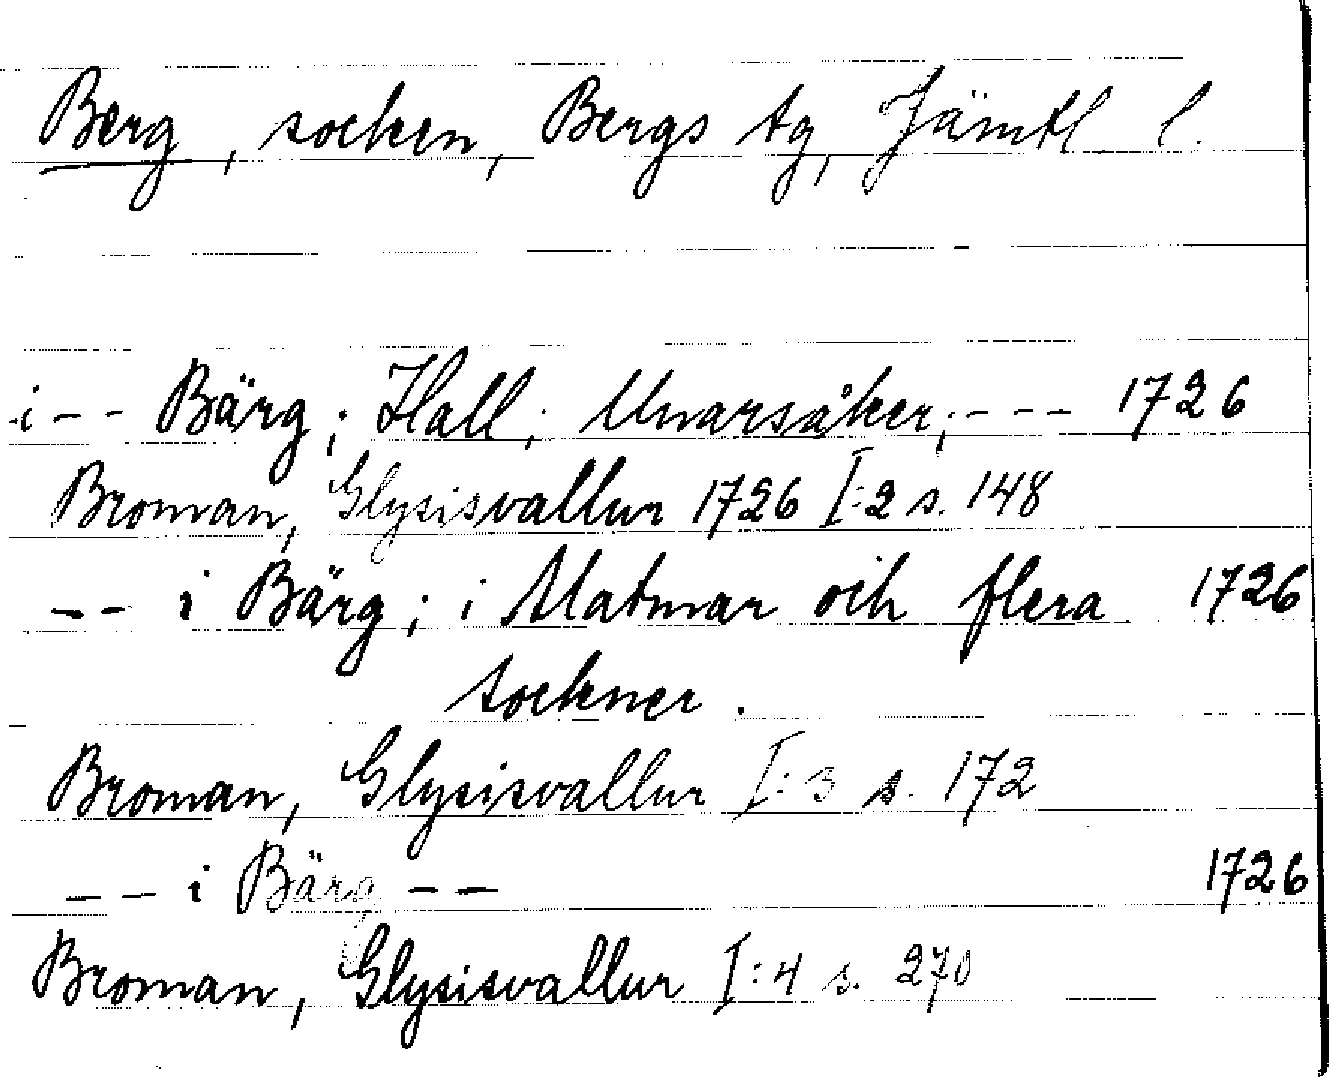 Berg, socken, Bergs tg, Jämtl. l.
i - - Bärg; Hall; Unarsåker; - - - 1726
Broman, Glysisvallur 1726 I:2 s. 148
- - i Bärg; i Matmar och flera 1726
sockner.
Broman, Glysisvallur I:3 s. 172
- - i Bärg - - 1726
Broman, Glysisvallur I:4 s. 270